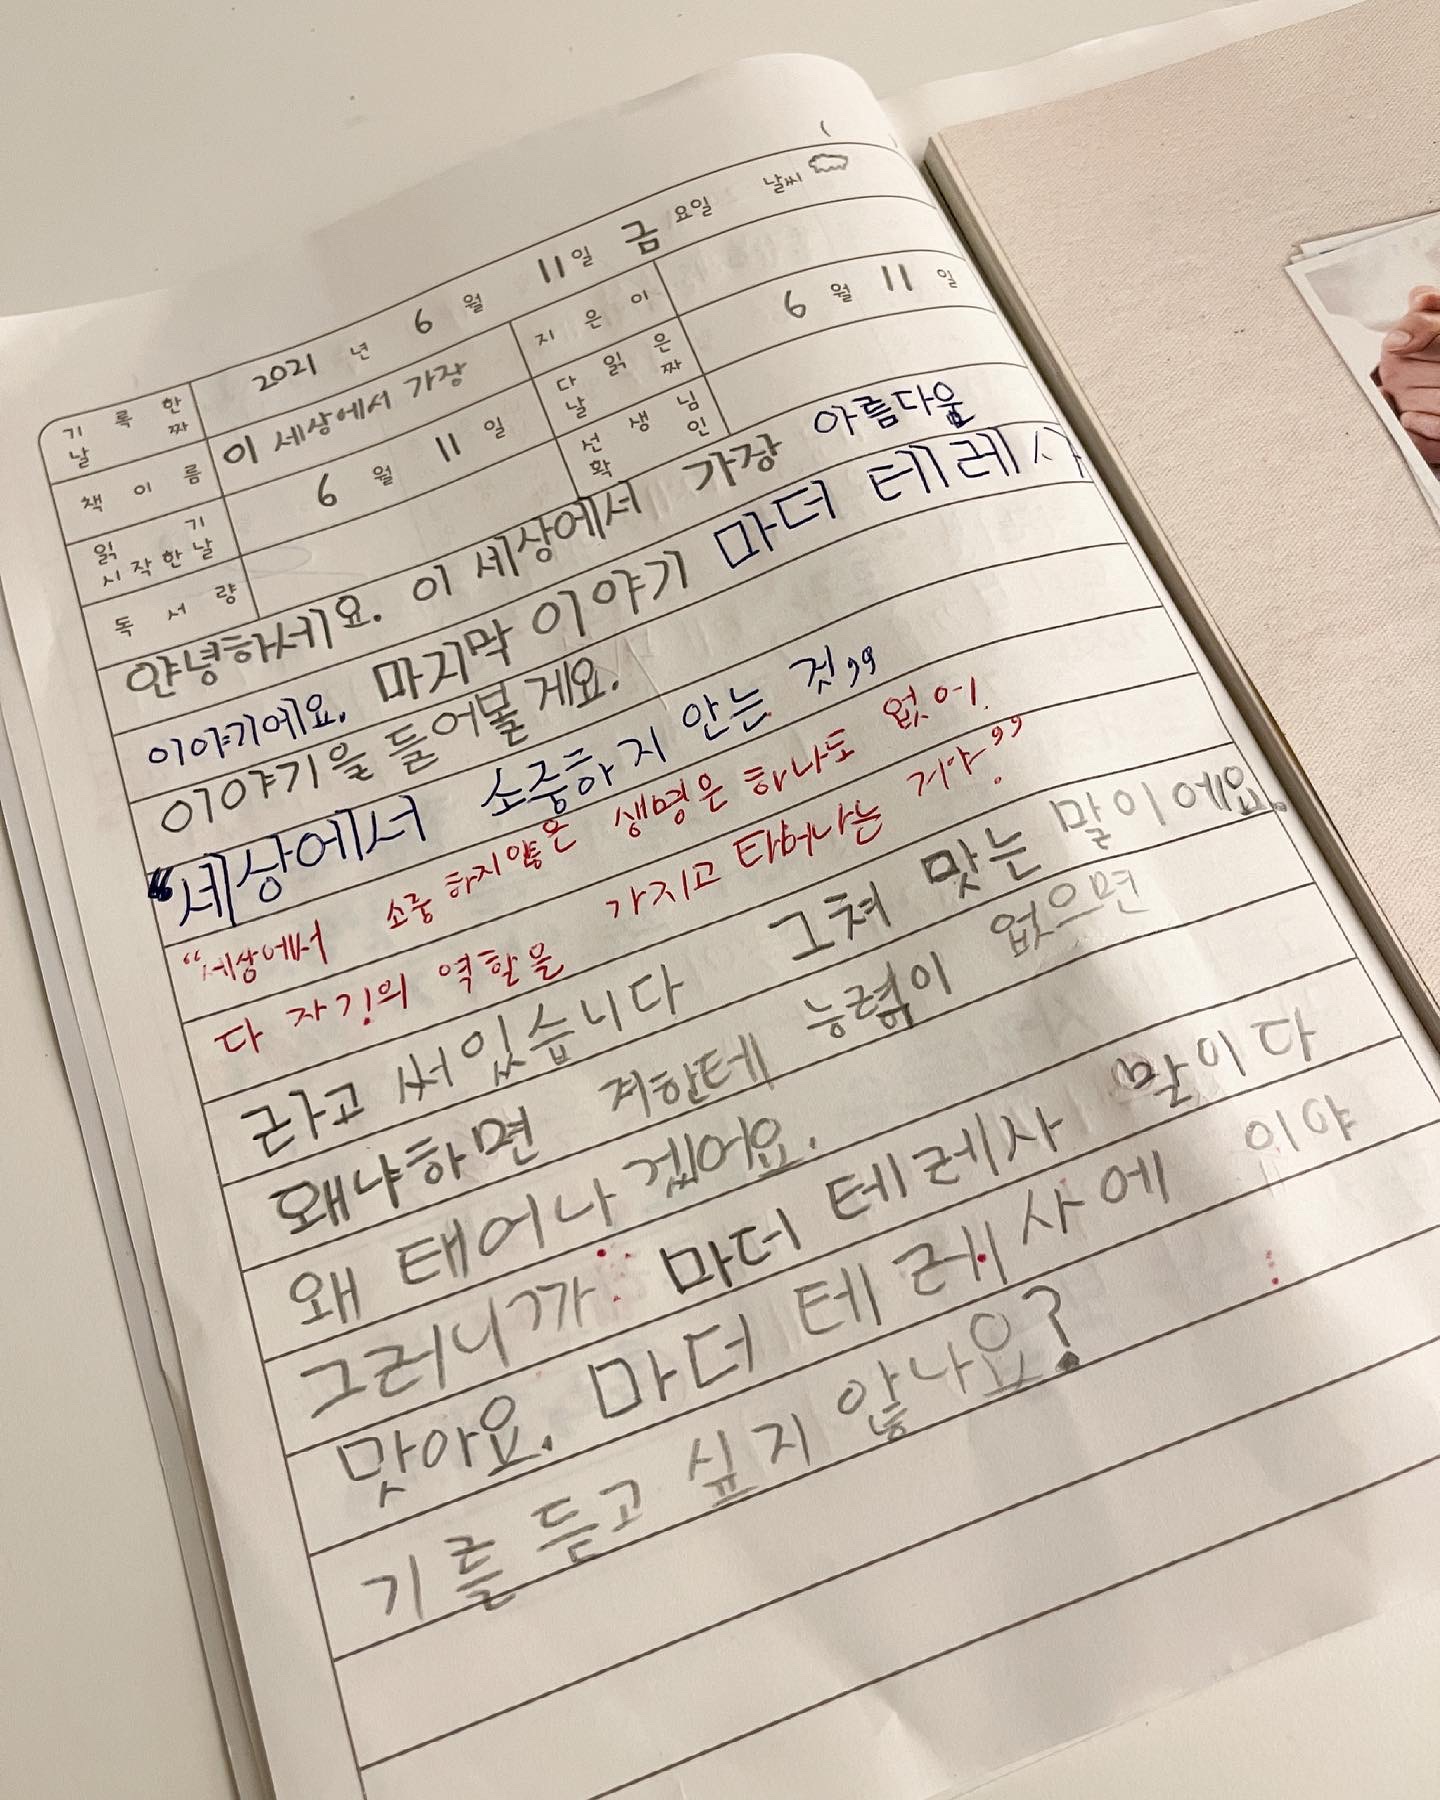 기록한 날짜 2021년 6월 11일 금요일 날씨
책이름 이 세상에서 가장 지은이
읽기 시작한 날 6월 11일 다 읽은 날짜 6월 11일
독서량 선생님 확인
안녕하세요. 이 세상에서 가장 아름다운
이야기에요. 마지막 이야기 마더 테레사
이야기을 들어볼게요.
"세상에서 소중하지 안는 것"
"세상에서 소중하지않은 생명은 하나도 없어.
다 자기의 역할을 가지고 태어나는 거야."
라고 써있습니다 그쳐 맞는 말이에요.
왜냐하면 저한테 능력이 없으면
왜 태어나겠어요.
그러니까 마더 테레사 말이 다
맞아요. 마더 테레사에 이야
기를 듣고 싶지 않나요?